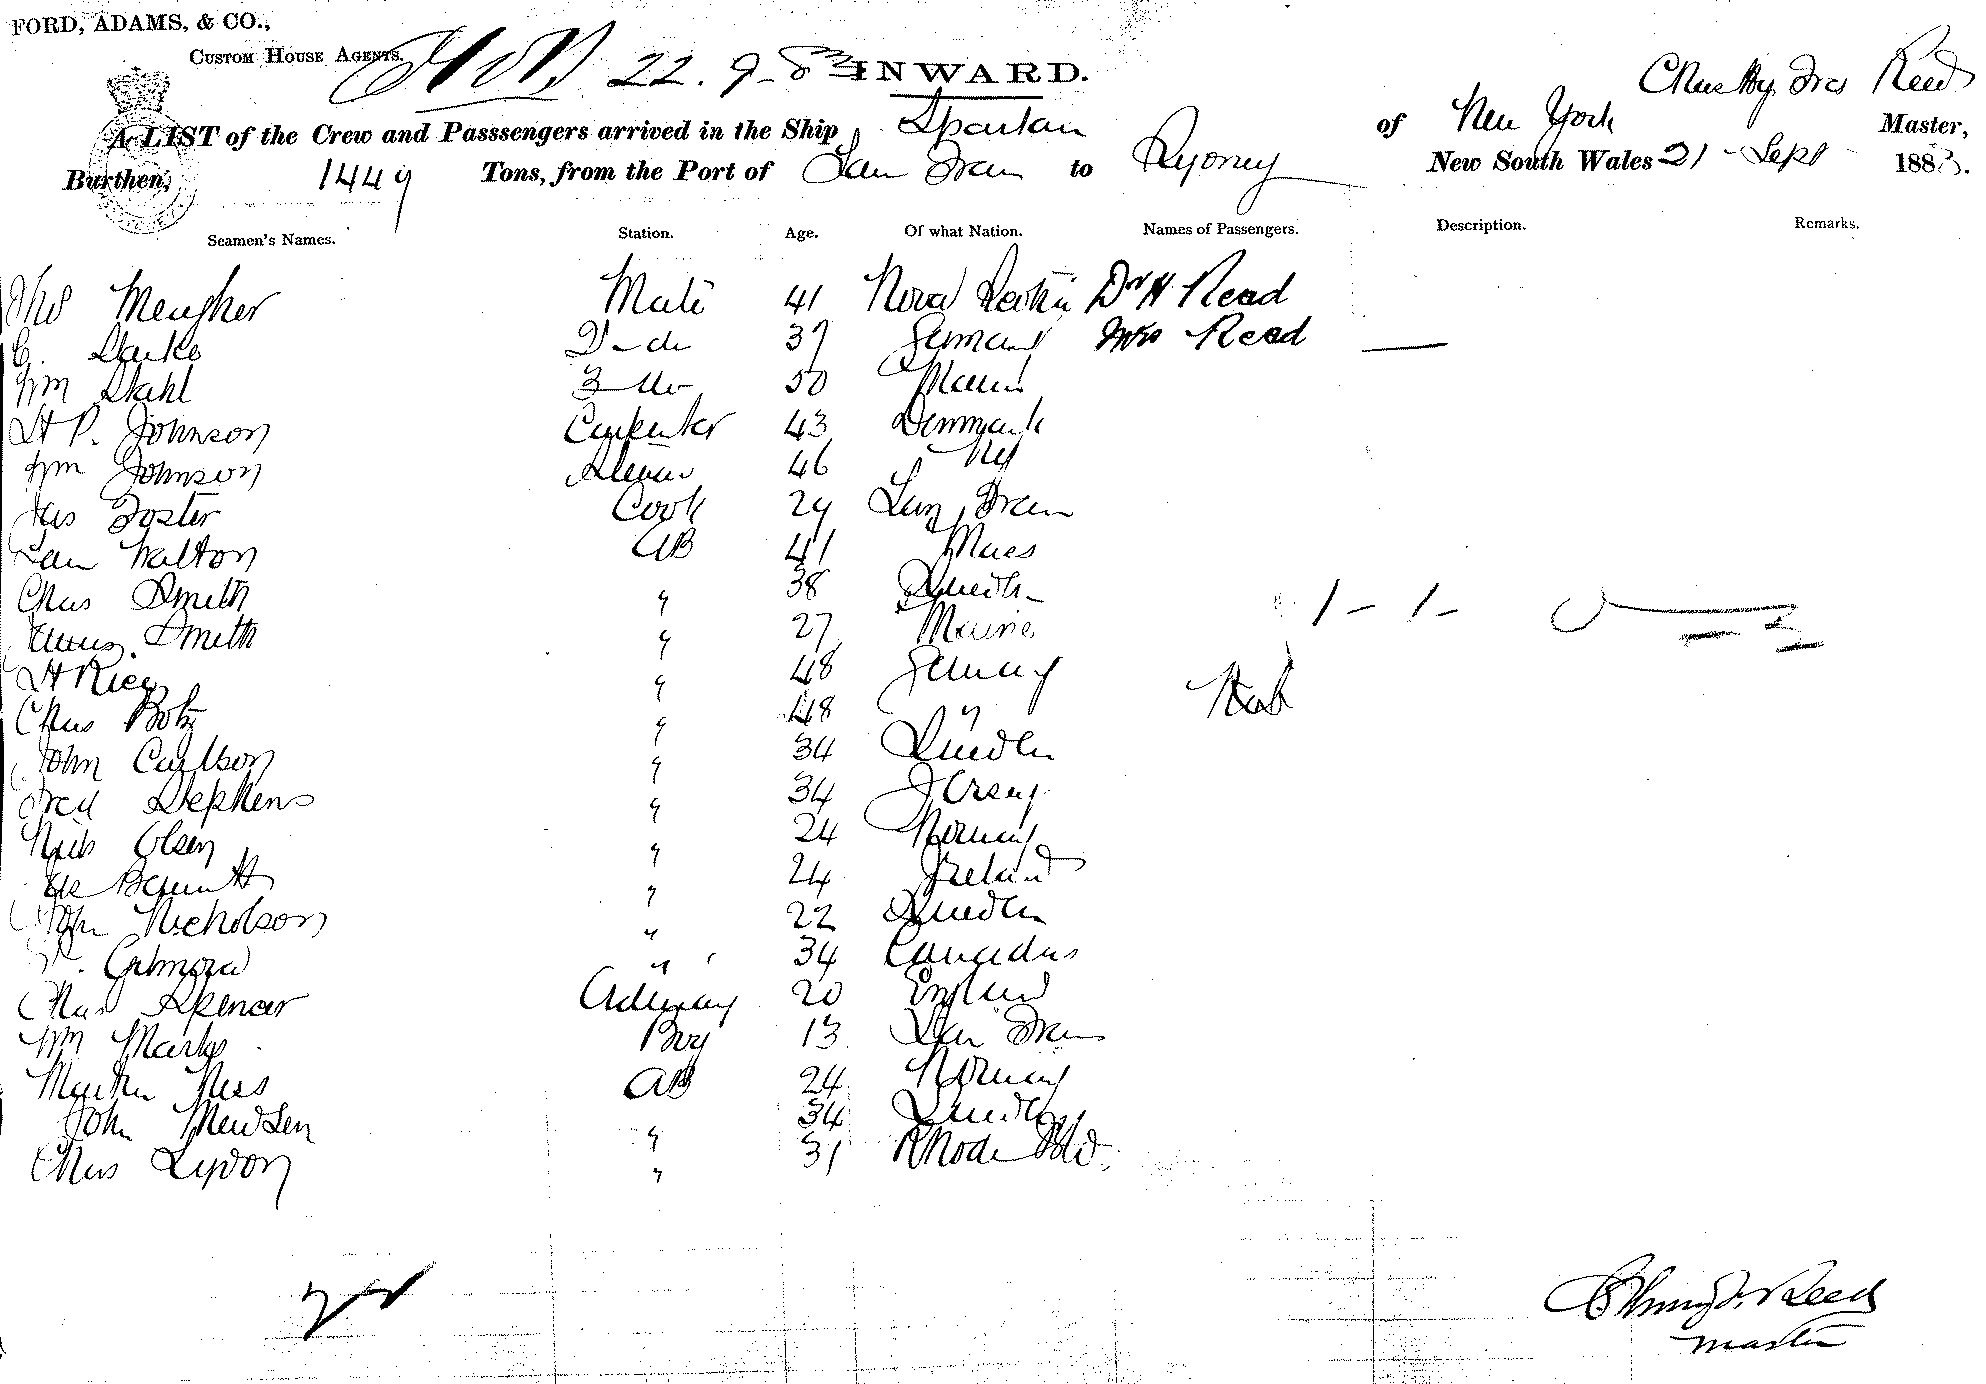 FORD, ADAMS, & CO.,
CUSTOM HOUSE AGENTS.
22.9-83 INWARD.
Chas Hy. Fras Reed
A LIST of the Crew and Passsengers arrived in the Ship Spartan of New York Master,
Burthen, 1449 Tons, from the Port of San Fran to Sydney New South Wales 21 - Sept 1883.
Seamen's Names. Station. Age. Of what Nation. Names of Passengers. Description. Remarks.
Thos Meagher Mate 41 Nova Scotia H. Read
Starke 2 - do 37 Germany Mrs Read
Wm Stahl 3 - do 50 Maine
H P. Johnson Carpenter 43 Denmark
Wm Johnson 46 NY
Jas Foster Cook 29 San Fran
Sam Walton AB 41 Mass
Chas Smith " 38 Sweden
Smith " 27 Maine
H " 48 Germany
Chas " 48 "
John Carlson " 34 Sweden
Fred Stephens " 34 Jersey
Olsen " 24 Norway
Bennett " 24 Ireland
John Nicholson " 22 Sweden
" 34 Canadas
Chas Spencer 20 England
Wm Marks Boy 13 San Fran
Martin Ness AB 24 Norway
John " 34 Sweden
Chas Lydon " 31 Rhode Isld.
1 - 1 -
Reed
master